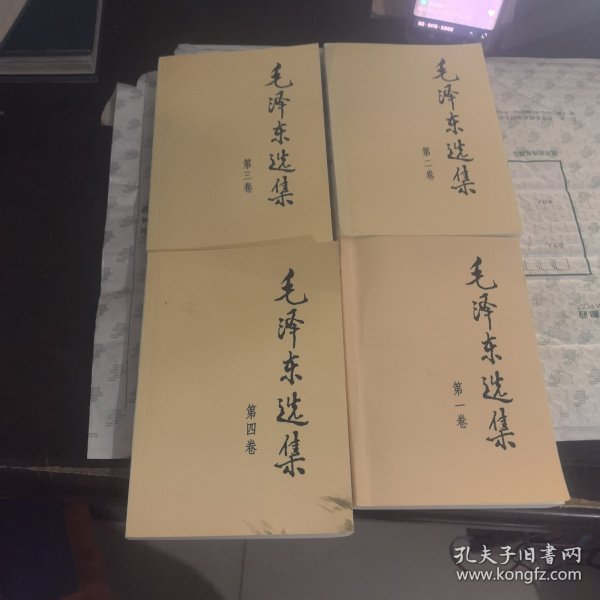 毛泽东选集
第三卷
毛泽东选集
第二卷
毛泽东选集
第四卷
毛泽东选集
第一卷
孔夫子旧书网
www.kongfz.com